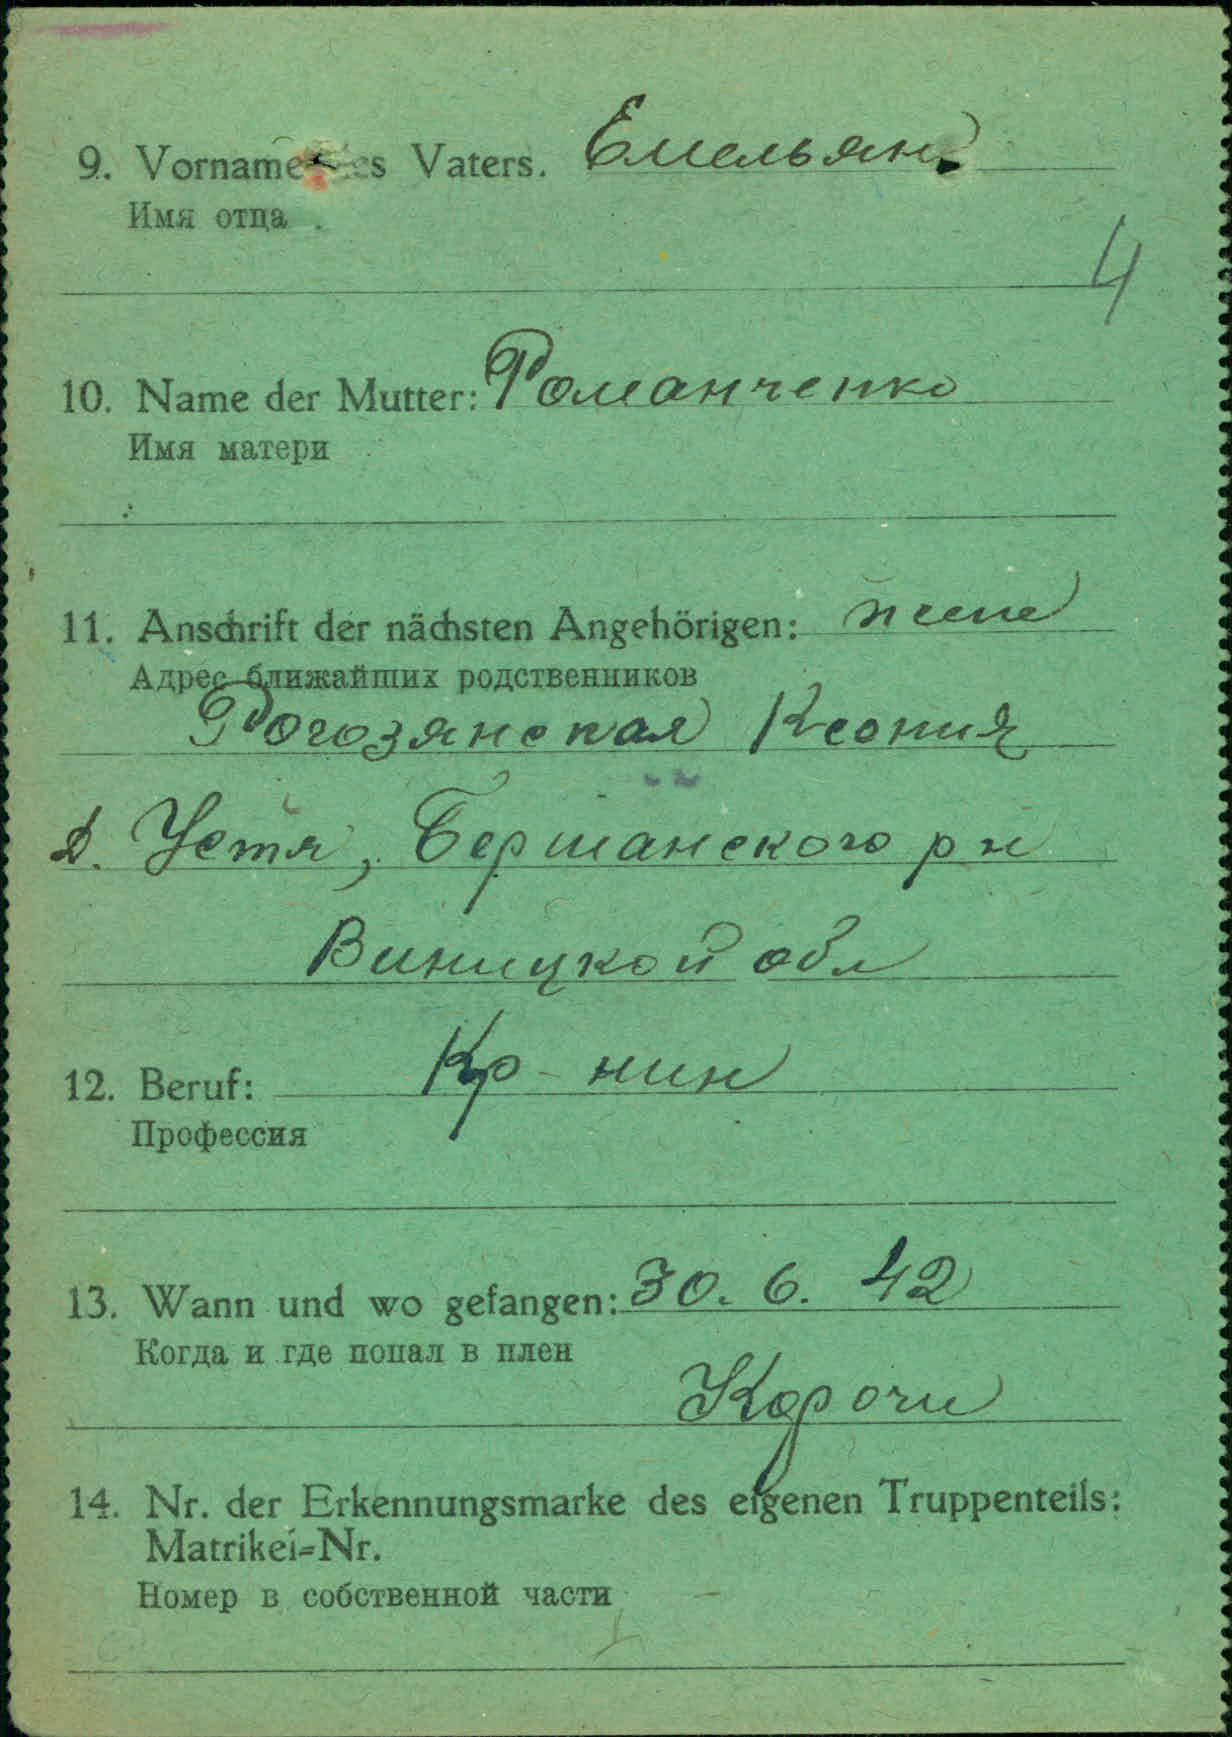 9. Vorname des Vaters. Емельян
Имя отца
4
10. Name der Mutter: Романченко
Имя матери
11. Anschrift der nächsten Angehörigen: жена
Адрес ближайших родственников
Рогозянская Ксения
д. Устя, Бершанского р н
Виницкой обл
12. Beruf: Кр-нин
Профессия
13. Wann und wo gefangen: 30. 6. 42
Когда и где попал в плен
Корочи
14. Nr. der Erkennungsmarke des eigenen Truppenteils:
Matrikel-Nr.
Номер в собственной части